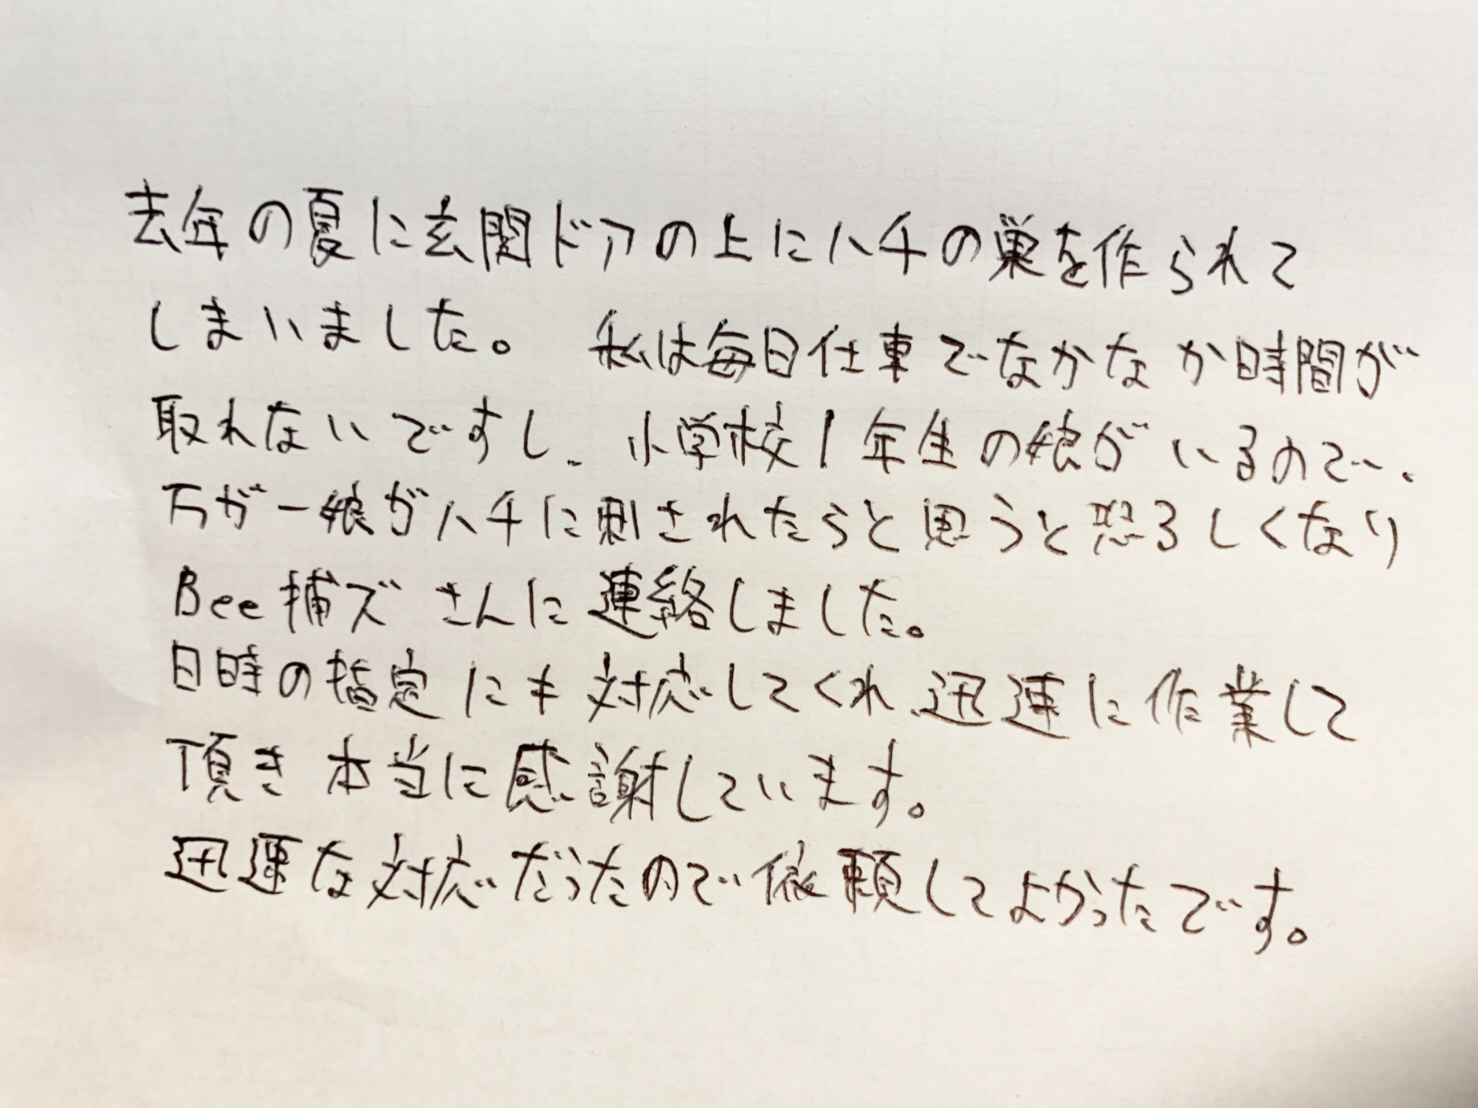 去年の夏に玄関ドアの上にハチの巣を作られて
しまいました。 私は毎日仕事でなかなか時間が
取れないですし、小学校1年生の娘がいるので、
万が一娘がハチに刺されたらと思うと恐ろしくなり
Bee捕ズさんに連絡しました。
日時の指定にも対応してくれ、迅速に作業して
頂き本当に感謝しています。
迅速な対応だったので依頼してよかったです。